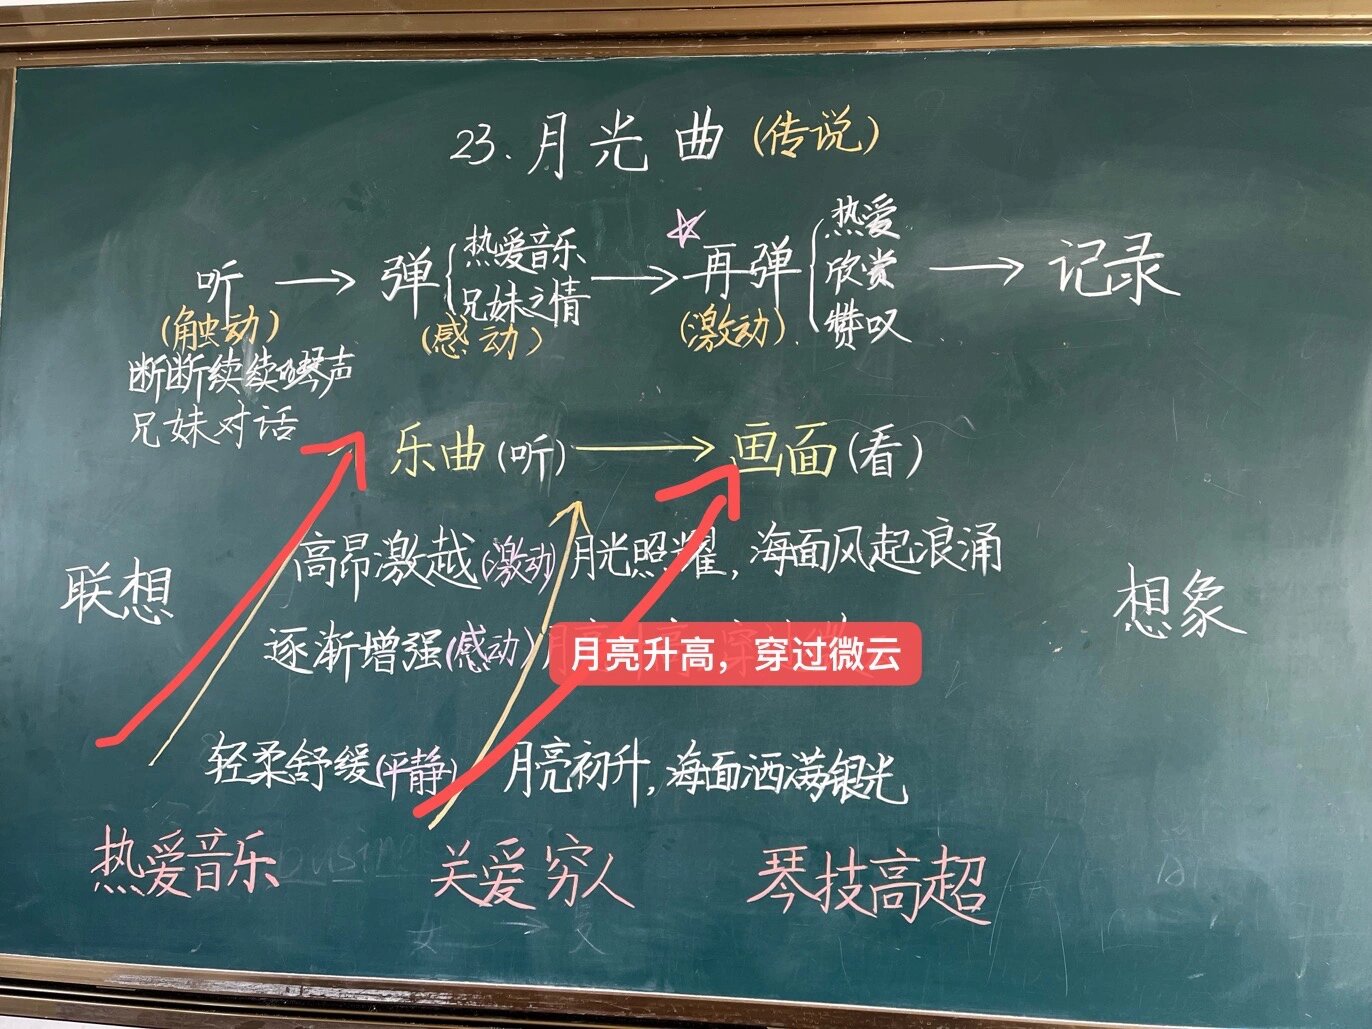 23.月光曲(传说)
听 → 弹{热爱音乐 兄妹之情 → ☆再弹{热爱 欣赏 赞叹 → 记录
(触动) (感动) (激动)
断断续续的琴声
兄妹对话
乐曲(听) → 画面(看)
高昂激越(激动) 月光照耀,海面风起浪涌
联想 想象
逐渐增强(感动) 月亮升高，穿过微云
轻柔舒缓(平静) 月亮初升,海面洒满银光
热爱音乐 关爱穷人 琴技高超